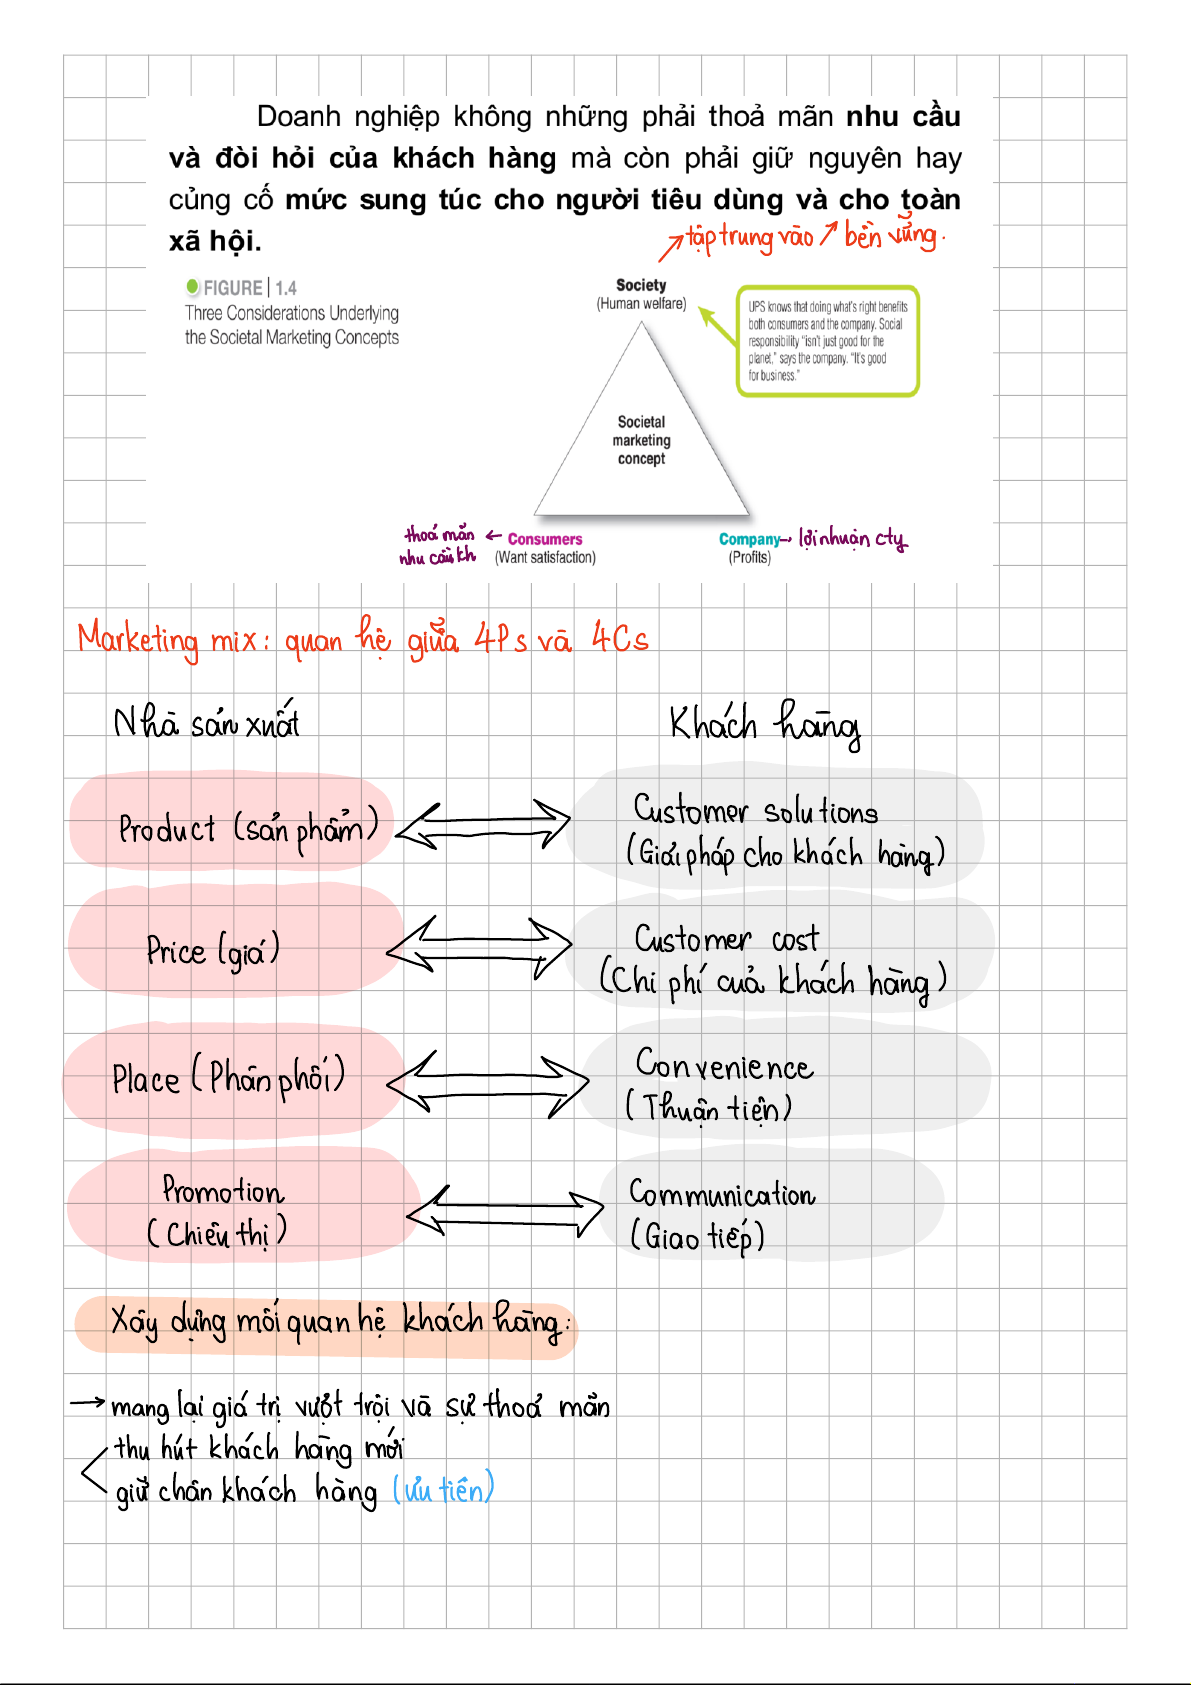 Doanh nghiệp không những phải thoả mãn nhu cầu
và đòi hỏi của khách hàng mà còn phải giữ nguyên hay
củng cố mức sung túc cho người tiêu dùng và cho toàn
xã hội.
↗ tập trung vào ↗ bền vững.
FIGURE | 1.4
Three Considerations Underlying
the Societal Marketing Concepts
Society
(Human welfare)
UPS knows that doing what's right benefits
both consumers and the company. Social
responsibility “isn't just good for the
planet,” says the company. “It's good
for business.”
Societal
marketing
concept
thoả mãn ← Consumers
nhu cầu kh (Want satisfaction)
Company → lợi nhuận cty
(Profits)
Marketing mix: quan hệ giữa 4Ps và 4Cs
Nhà sản xuất Khách hàng
Product (sản phẩm) Customer solutions
(Giải pháp cho khách hàng)
Price (giá) Customer cost
(Chi phí của khách hàng)
Place (Phân phối) Convenience
(Thuận tiện)
Promotion Communication
(Chiêu thị) (Giao tiếp)
Xây dựng mối quan hệ khách hàng:
→ mang lại giá trị vượt trội và sự thoả mãn
thu hút khách hàng mới
giữ chân khách hàng (ưu tiên)